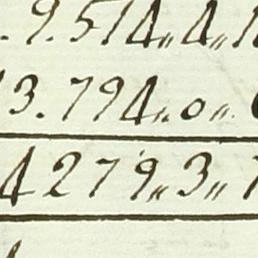 .9.514„4„1
3.794„0„
4279„3„1